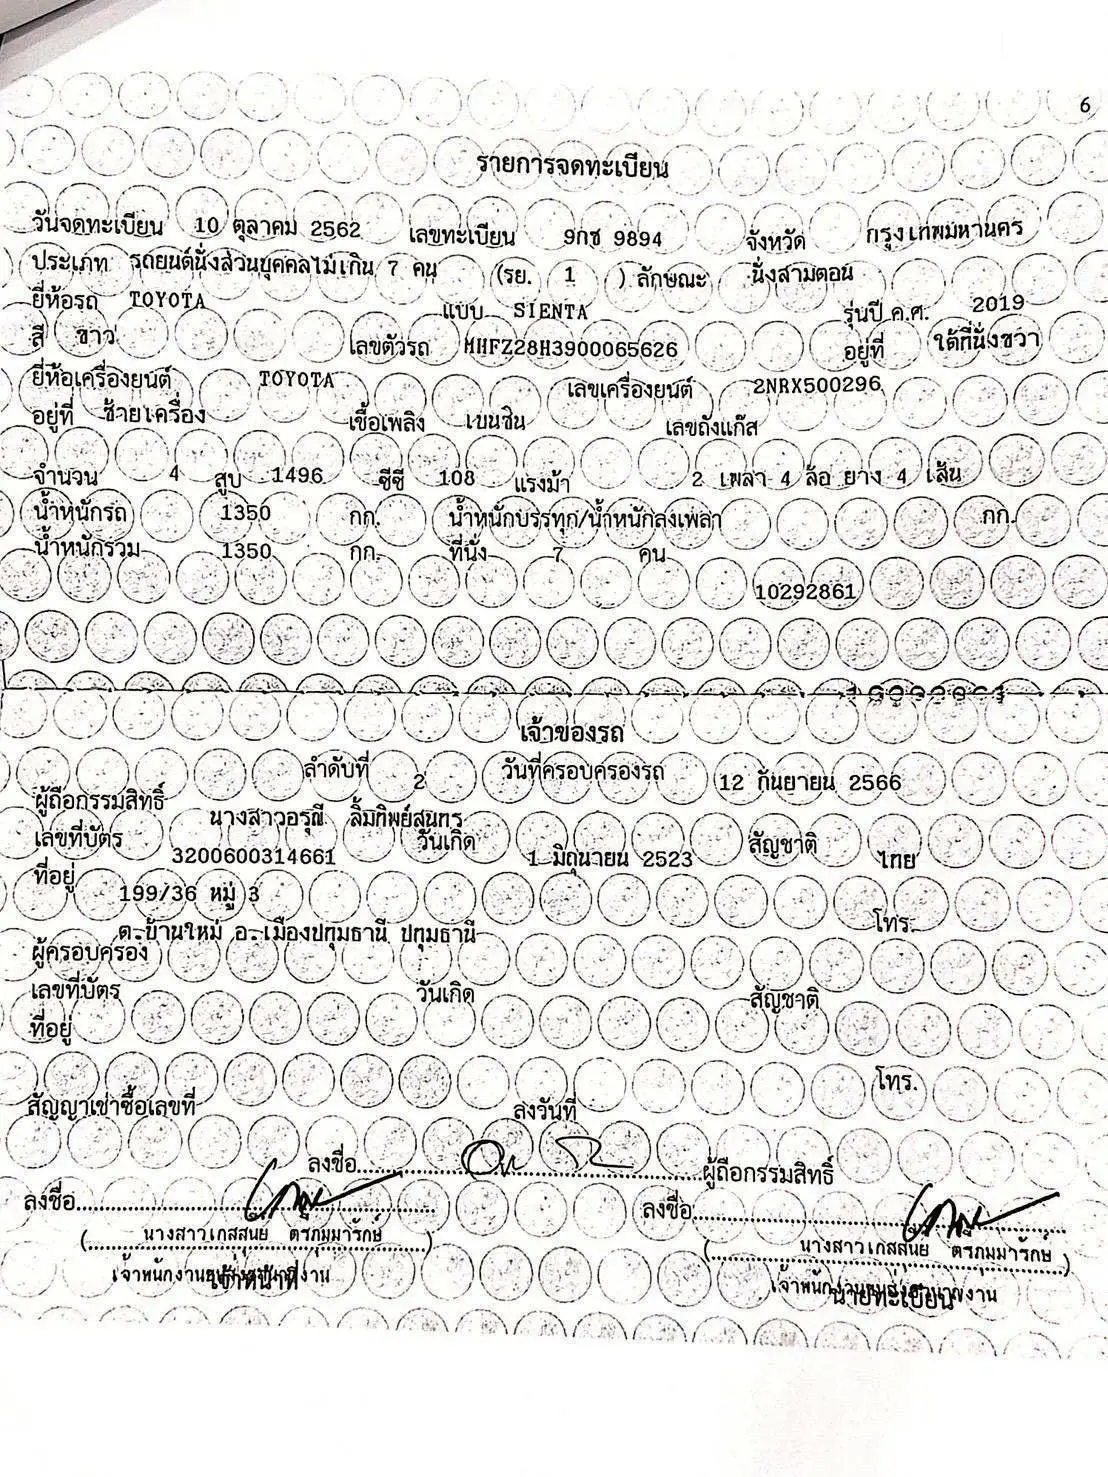 6
รายการจดทะเบียน
วันจดทะเบียน 10 ตุลาคม 2562 เลขทะเบียน 9กช 9894 จังหวัด กรุงเทพมหานคร
ประเภท รถยนต์นั่งส่วนบุคคลไม่เกิน 7 คน (รย. 1 ) ลักษณะ นั่งสามตอน
ยี่ห้อรถ TOYOTA แบบ SIENTA รุ่นปี ค.ศ. 2019
สี ขาว เลขตัวรถ MHFZ28H3900065626 อยู่ที่ ใต้ที่นั่งขวา
ยี่ห้อเครื่องยนต์ TOYOTA เลขเครื่องยนต์ 2NRX500296
อยู่ที่ ซ้ายเครื่อง เชื้อเพลิง เบนซิน เลขถังแก๊ส
จำนวน 4 สูบ 1496 ซีซี 108 แรงม้า 2 เพลา 4 ล้อ ยาง 4 เส้น
น้ำหนักรถ 1350 กก. น้ำหนักบรรทุก/น้ำหนักลงเพลา กก.
น้ำหนักรวม 1350 กก. ที่นั่ง 7 คน
10292861
เจ้าของรถ
ลำดับที่ 2 วันที่ครอบครองรถ 12 กันยายน 2566
ผู้ถือกรรมสิทธิ์ นางสาวอรุณี ลิ้มทิพย์สุนทร
เลขที่บัตร 3200600314661 วันเกิด 1 มิถุนายน 2523 สัญชาติ ไทย
ที่อยู่ 199/36 หมู่ 3
ต.บ้านใหม่ อ.เมืองปทุมธานี ปทุมธานี โทร.
ผู้ครอบครอง
เลขที่บัตร วันเกิด สัญชาติ
ที่อยู่
โทร.
สัญญาเช่าซื้อเลขที่ ลงวันที่
ลงชื่อ ผู้ถือกรรมสิทธิ์
ลงชื่อ ลงชื่อ
(นางสาวเกสสุนีย์ ตรีภุมมารักษ์) (นางสาวเกสสุนีย์ ตรีภุมมารักษ์)
เจ้าหน้าที่ นายทะเบียน